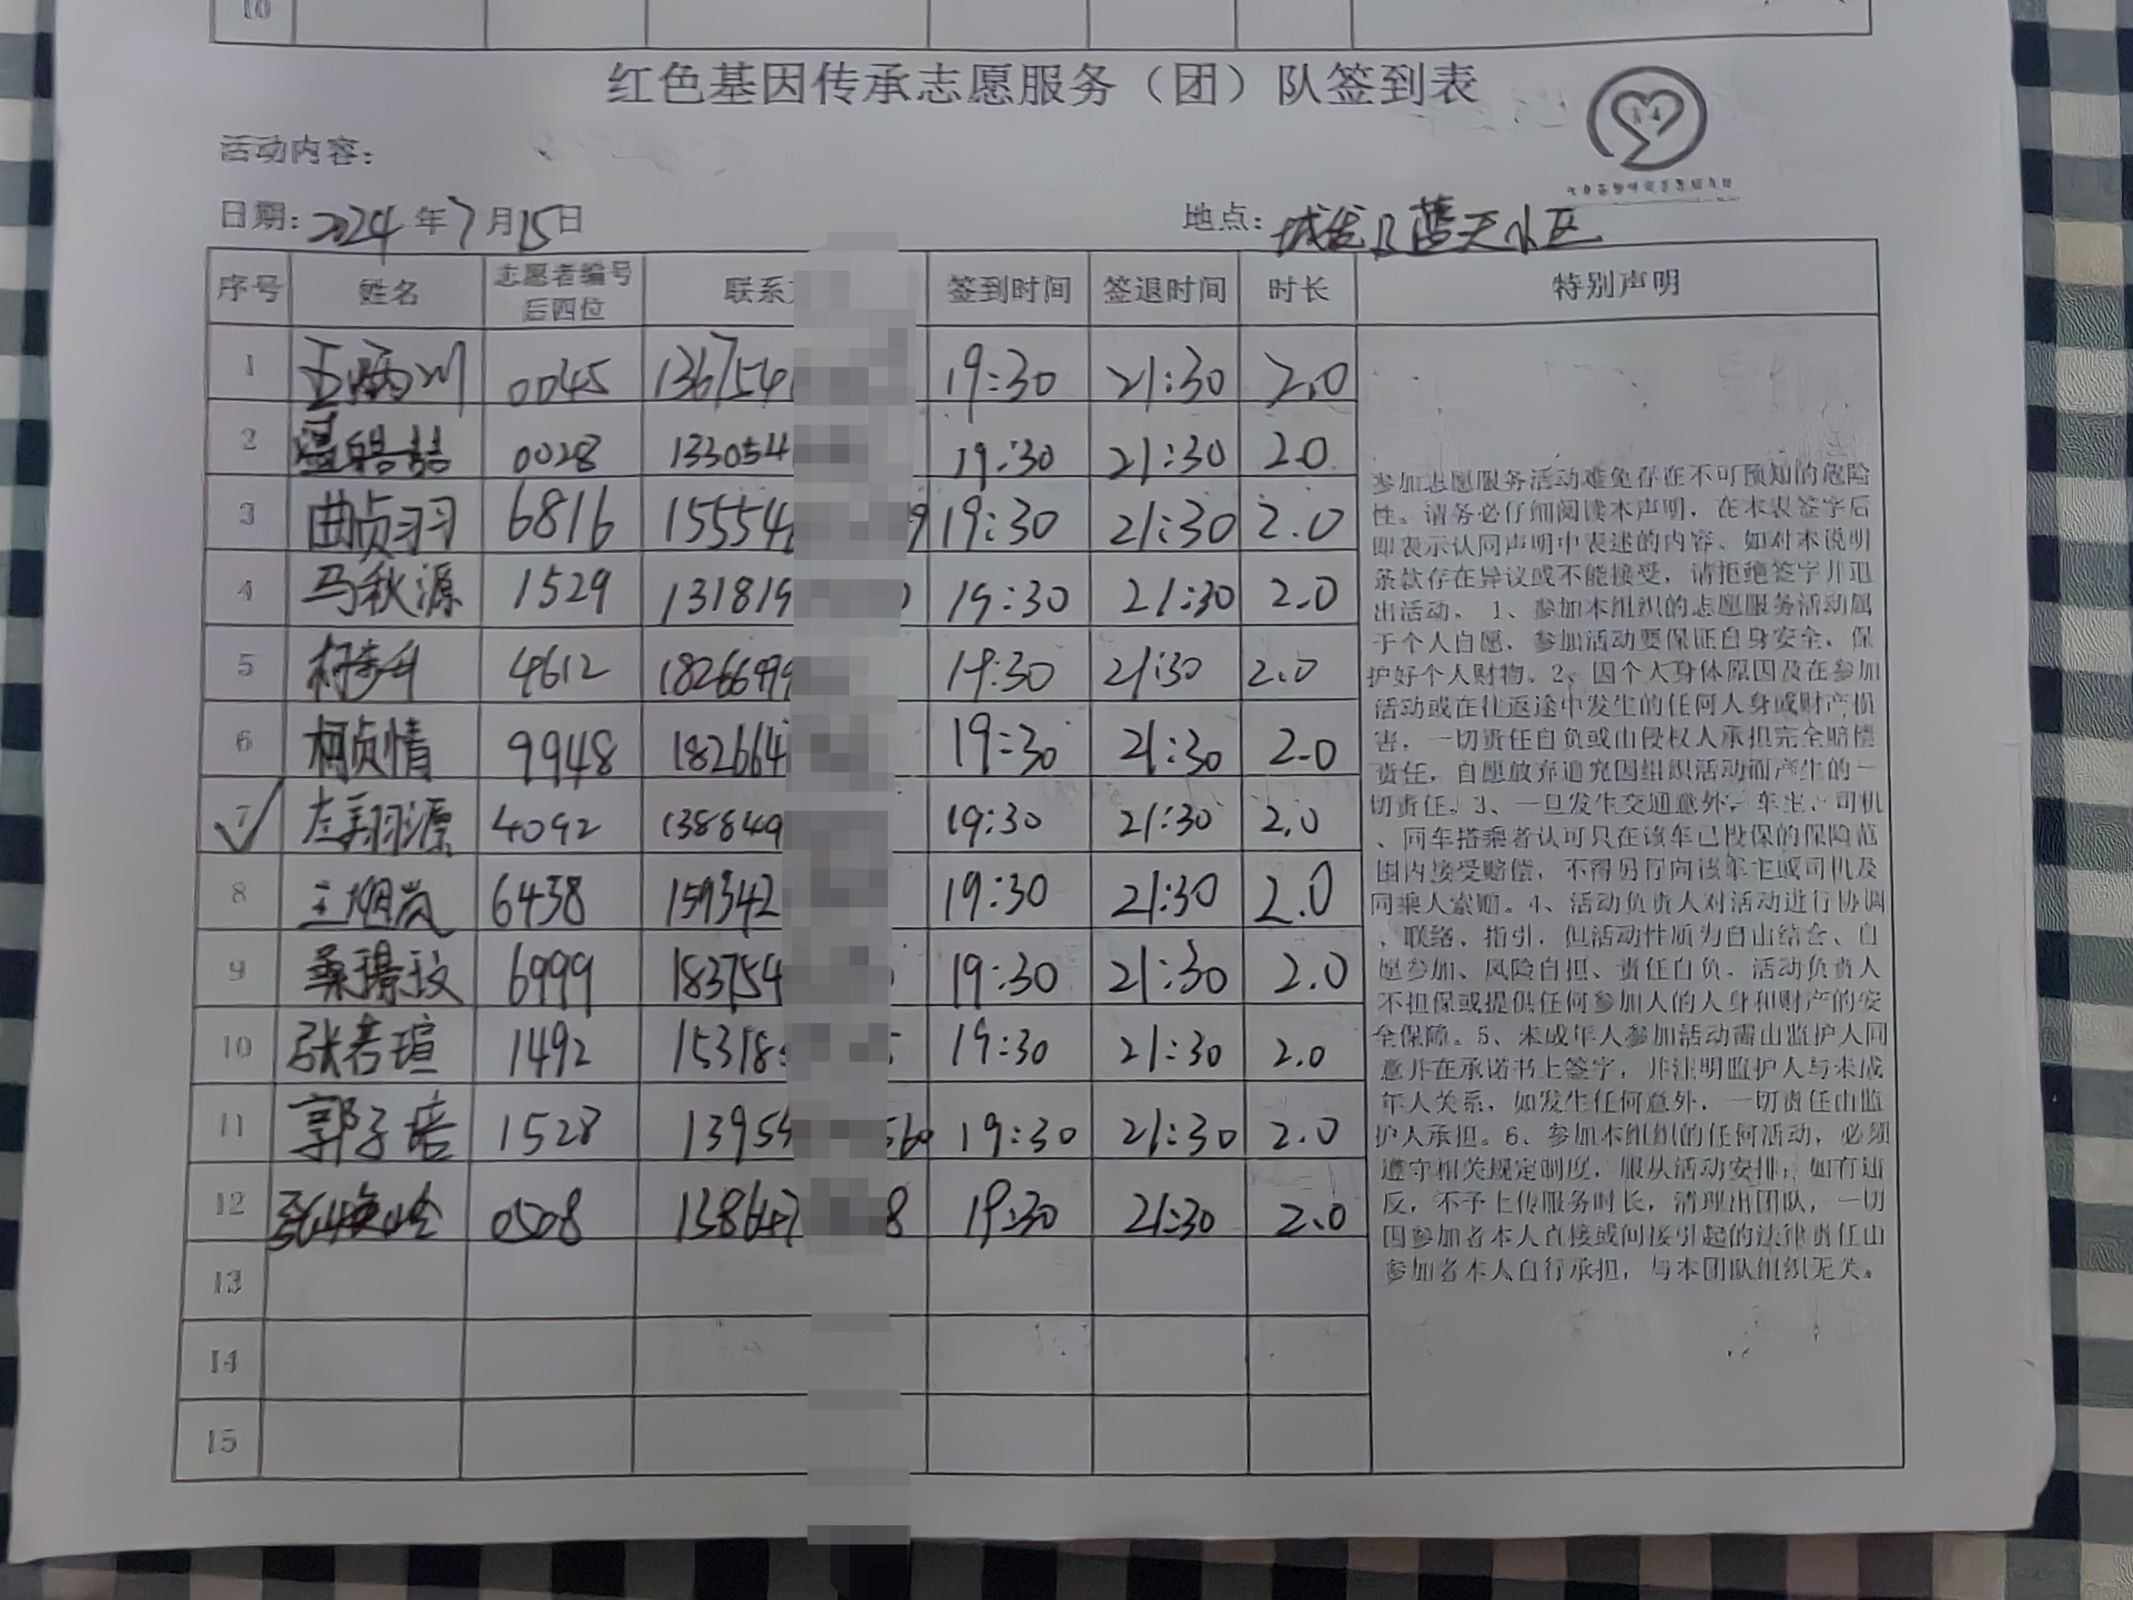 10
红色基因传承志愿服务（团）队签到表
活动内容：
日期：2024年7月15日
地点：蓝天小区
序号 姓名 志愿者编号后四位 联系 签到时间 签退时间 时长 特别声明
1 0045 136754 19:30 21:30 2.0
2 0028 133054 19:30 21:30 2.0
3 曲贞羽 6816 15554 9 19:30 21:30 2.0
4 马秋源 1529 131819 19:30 21:30 2.0
5 4612 1826699 19:30 21:30 2.0
6 柯贞情 9948 182664 19:30 21:30 2.0
7 左翔源 4092 138849 19:30 21:30 2.0
8 6438 159342 19:30 21:30 2.0
9 6999 183754 19:30 21:30 2.0
10 张若瑄 1492 15318 19:30 21:30 2.0
11 郭子培 1528 13954 560 19:30 21:30 2.0
12 0508 138647 8 19:30 21:30 2.0
13
14
15
参加志愿服务活动难免存在不可预知的危险
性。请务必仔细阅读本声明，在本表签字后
即表示认同声明中表述的内容。如对本说明
条款存在异议或不能接受，请拒绝签字并退
出活动。1、参加本组织的志愿服务活动属
于个人自愿，参加活动要保证自身安全，保
护好个人财物。2、因个人身体原因及在参加
活动或在往返途中发生的任何人身或财产损
害，一切责任自负或由侵权人承担完全赔偿
责任，自愿放弃追究因组织活动而产生的一
切责任。3、一旦发生交通意外，车主、司机
、同车搭乘者认可只在该车已投保的保险范
围内接受赔偿，不得另行向该车主或司机及
同乘人索赔。4、活动负责人对活动进行协调
、联络、指引，但活动性质为自由结合、自
愿参加、风险自担、责任自负，活动负责人
不担保或提供任何参加人的人身和财产的安
全保障。5、未成年人参加活动需由监护人同
意并在承诺书上签字，并注明监护人与未成
年人关系，如发生任何意外，一切责任由监
护人承担。6、参加本组织的任何活动，必须
遵守相关规定制度，服从活动安排；如有违
反，不予上传服务时长，清理出团队，一切
因参加者本人直接或间接引起的法律责任由
参加者本人自行承担，与本团队组织无关。